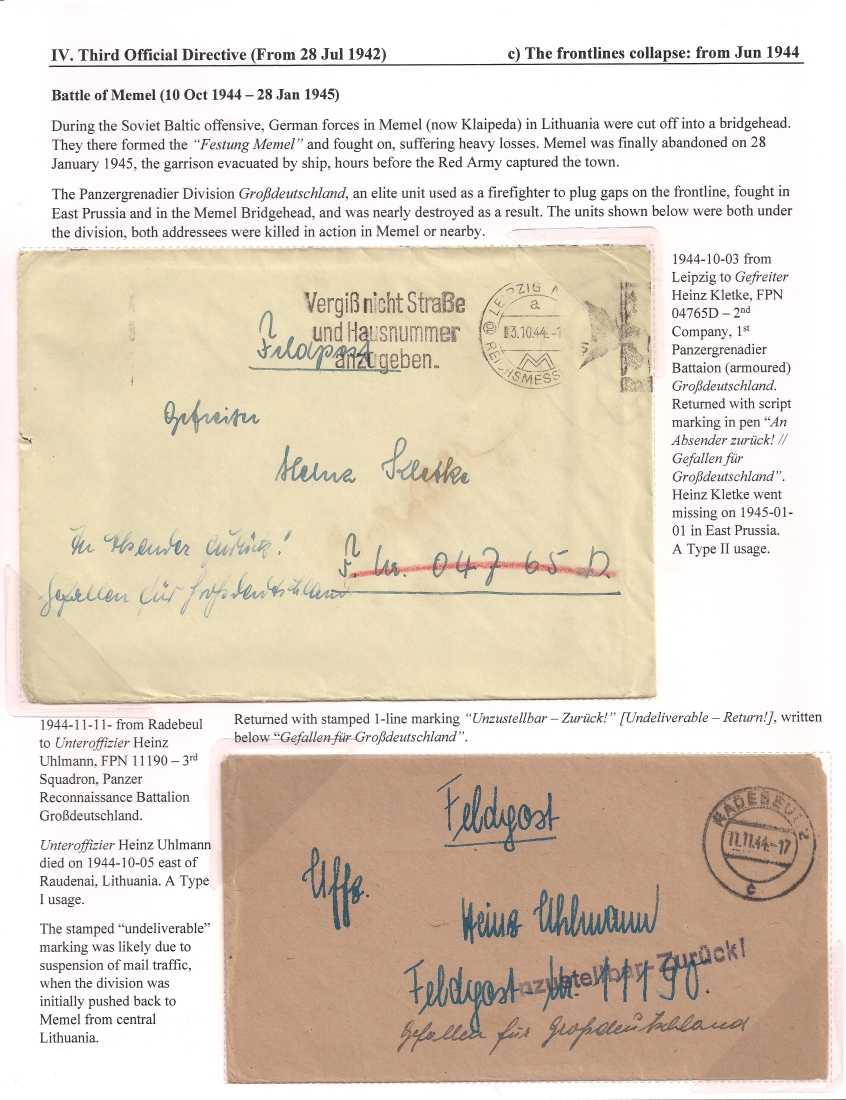 IV. Third Official Directive (From 28 Jul 1942) c) The frontlines collapse: from Jun 1944
Battle of Memel (10 Oct 1944 – 28 Jan 1945)
During the Soviet Baltic offensive, German forces in Memel (now Klaipeda) in Lithuania were cut off into a bridgehead.
They there formed the “Festung Memel” and fought on, suffering heavy losses. Memel was finally abandoned on 28
January 1945, the garrison evacuated by ship, hours before the Red Army captured the town.
The Panzergrenadier Division Großdeutschland, an elite unit used as a firefighter to plug gaps on the frontline, fought in
East Prussia and in the Memel Bridgehead, and was nearly destroyed as a result. The units shown below were both under
the division, both addressees were killed in action in Memel or nearby.
Vergiß nicht Straße
und Hausnummer
anzugeben.
LEIPZIG
a
3.10.44.-1
REICHSMESS
Feldpost
Gefreiter
Heinz Kletke
An Absender zurück!
F. Nr. 04765 D.
Gefallen für Großdeutschland
1944-10-03 from
Leipzig to Gefreiter
Heinz Kletke, FPN
04765D – 2nd
Company, 1st
Panzergrenadier
Battaion (armoured)
Großdeutschland.
Returned with script
marking in pen “An
Absender zurück! //
Gefallen für
Großdeutschland”.
Heinz Kletke went
missing on 1945-01-
01 in East Prussia.
A Type II usage.
1944-11-11- from Radebeul
to Unteroffizier Heinz
Uhlmann, FPN 11190 – 3rd
Squadron, Panzer
Reconnaissance Battalion
Großdeutschland.
Unteroffizier Heinz Uhlmann
died on 1944-10-05 east of
Raudenai, Lithuania. A Type
I usage.
The stamped “undeliverable”
marking was likely due to
suspension of mail traffic,
when the division was
initially pushed back to
Memel from central
Lithuania.
Returned with stamped 1-line marking “Unzustellbar – Zurück!” [Undeliverable – Return!], written
below “Gefallen für Großdeutschland”.
Feldpost
RADEBEUL 2
11.11.44.-17
c
Uffz.
Heinz Uhlmann
Unzustellbar-Zurück!
Feldpost Nr. 11190.
Gefallen für Großdeutschland